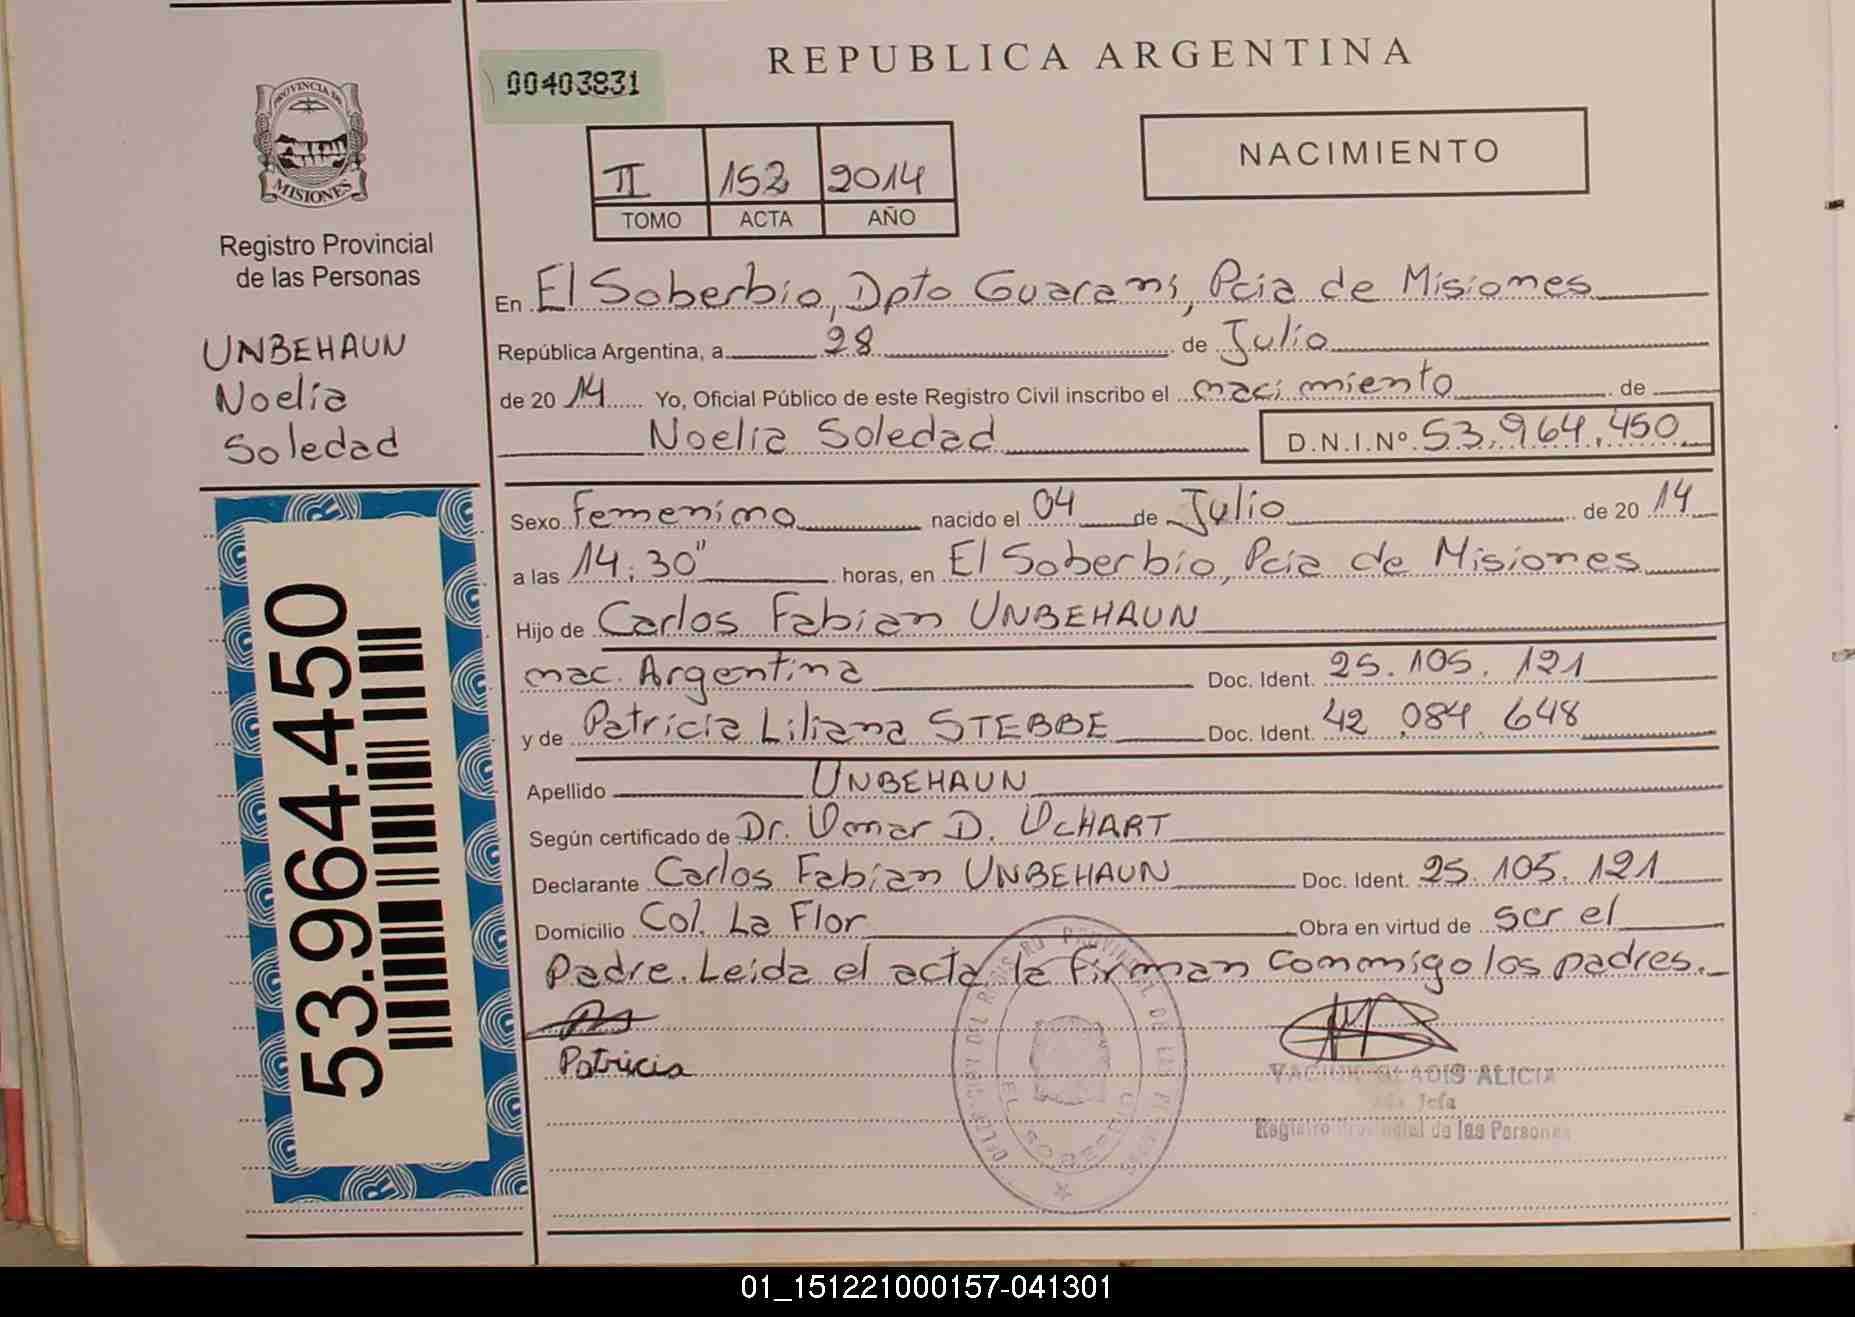 REPUBLICA ARGENTINA
00403831
NACIMIENTO
II 152 2014
TOMO ACTA AÑO
PROVINCIA DE
MISIONES
Registro Provincial
de las Personas
UNBEHAUN
Noelia
Soledad
53.964.450
En El Soberbio, Dpto Guaraní, Pcia de Misiones
República Argentina, a 28 de Julio
de 2014 Yo, Oficial Público de este Registro Civil inscribo el nacimiento de
Noelia Soledad D.N.I.Nº 53.964.450
Sexo Femenino nacido el 04 de Julio de 2014
a las 14:30" horas, en El Soberbio, Pcia de Misiones
Hijo de Carlos Fabian UNBEHAUN
nac. Argentina Doc. Ident. 25.105.121
y de Patricia Liliana STEBBE Doc. Ident. 42.084.648
Apellido UNBEHAUN
Según certificado de Dr. Omar D. OCHART
Declarante Carlos Fabian UNBEHAUN Doc. Ident. 25.105.121
Domicilio Col. La Flor Obra en virtud de ser el
Padre. Leida el acta la firman conmigo los padres.
Patricia
GLADIS ALICIA
Jefa
Registro Provincial de las Personas
EL SOBERBIO
01_151221000157-041301